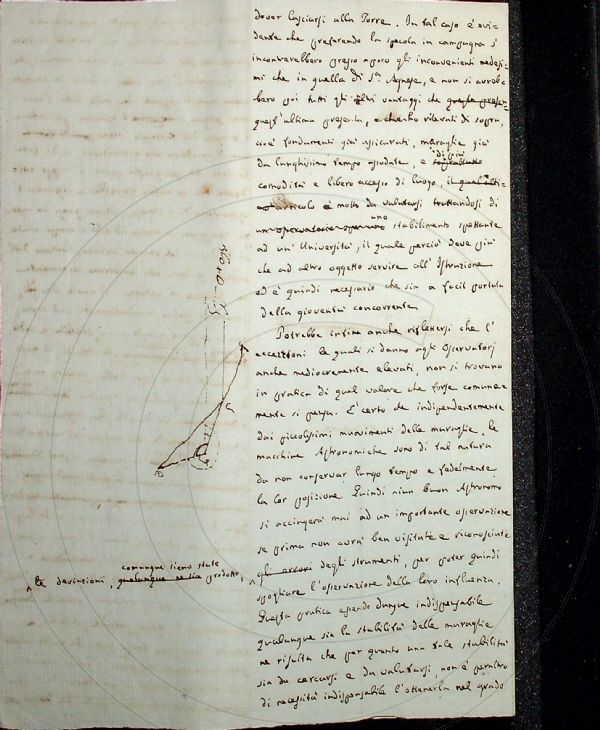 dover lasciarsi alla Torre. In tal caso è evi=
dente che preferendo la specola in campagna s'
incontrerebbero presso a poco gli inconvenienti medesi=
mi che in quella di S.ta Agnese, e non si avreb=
bero poi tutti gli altri vantaggi che questa presen=
quest'ultima presenta, e rilevati di sopra,
cioè fondamenti già assicurati, muraglie già
da lunghissimo tempo assodate, e di più
comodità e libero accesso di luogo, il qual ulti=
mo articolo è molto da valutarsi trattandosi di
uno stabilimento spettante
ad un' Università, il quale perciò deve più
che ad altro oggetto servire all' Istruzione
ed è quindi necessario che sia a facil portata
della gioventù concorrente.
Potrebbe infine anche riflettersi che l'
eccezzioni le quali si danno agli Osservatorj
anche mediocremente elevati, non si trovano
in pratica di quel valore che forse comune=
mente si pensa. E' certo che indipendentemente
dai piccolissimi movimenti delle muraglie, le
macchine Astronomiche sono di tal natura
da non conservar lungo tempo e fedelmente
la lor posizione. Quindi niun buon Astronomo
si accingerà mai ad un importante osservazione
se prima non avrà ben visitate e riconosciute
gli errori degli strumenti, per poter quindi
spogliare l'osservazione della loro influenza.
Questa pratica essendo dunque indispensabile
qualunque sia la stabilità delle muraglie
ne risulta che per quanto una tale stabilità
sia da cercarsi e da valutarsi non è peraltro
di necessità indispensabile l'ottenerla nel grado
comunque sieno state
le deviazioni, qualunque ne sia prodotte,